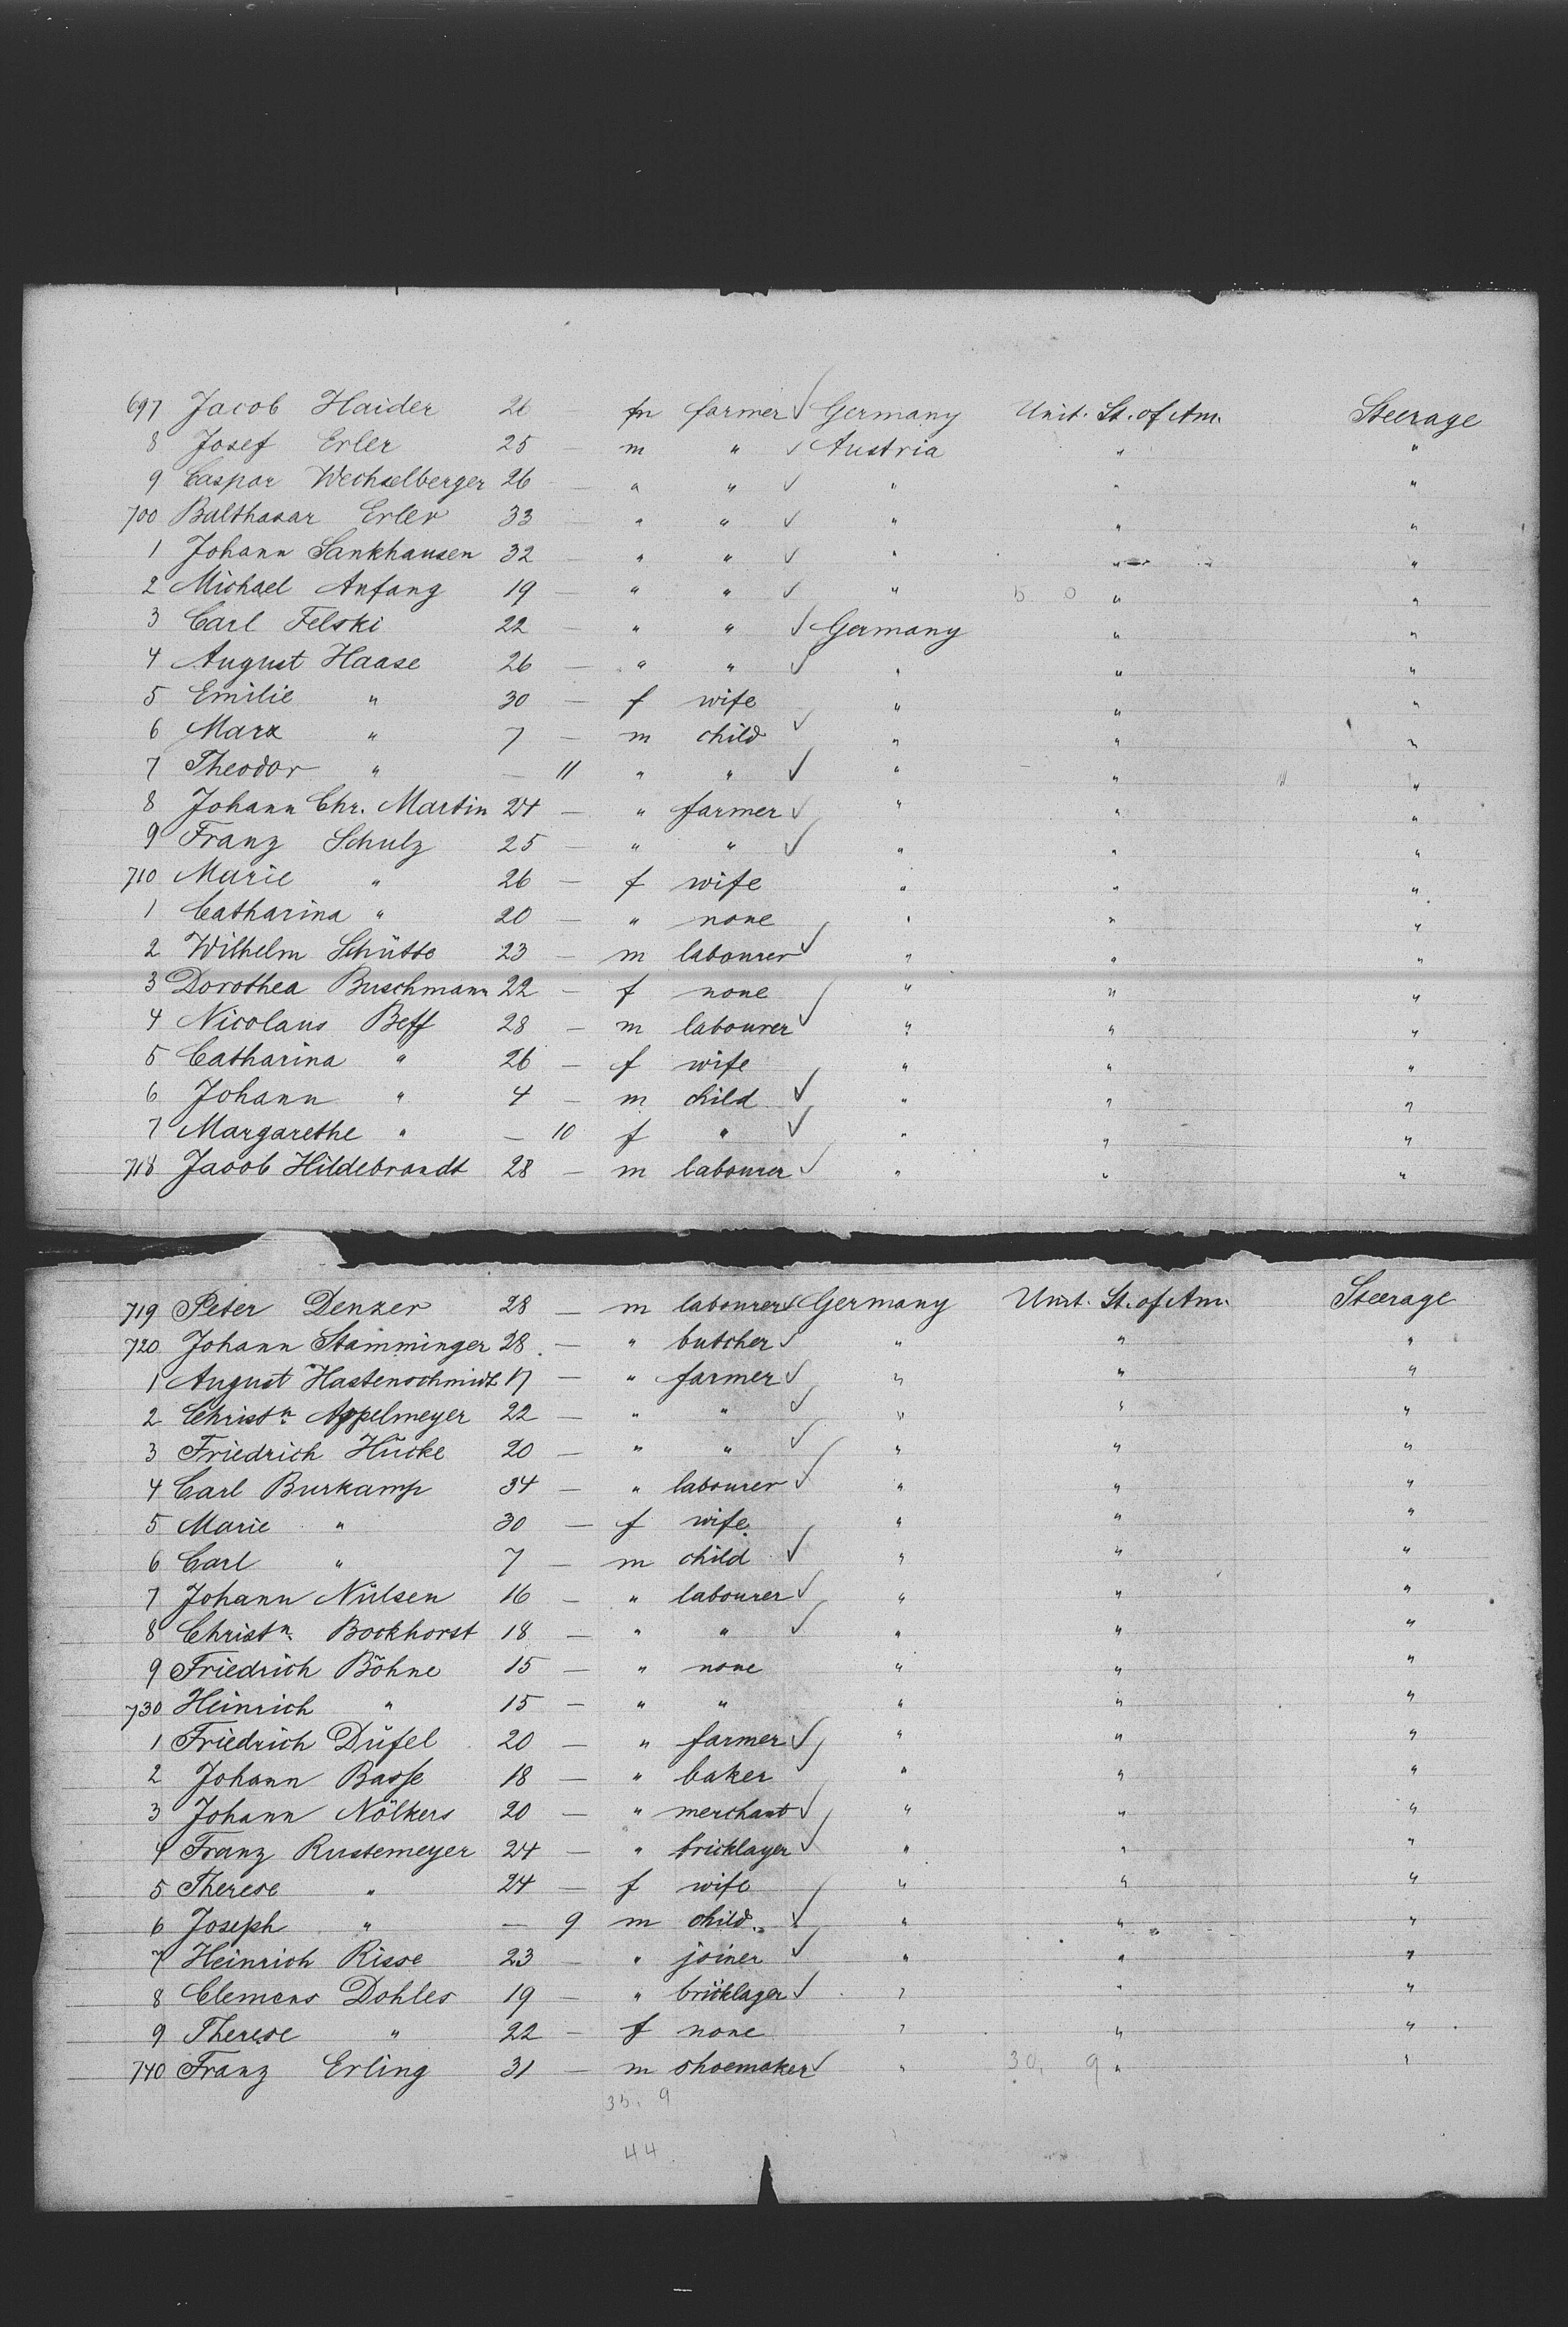 697 Jacob Haider 26 m farmer ✓ Germany Unit. St. of Am. Steerage
8 Josef Erler 25 — m " ✓ Austria " "
9 Caspar Wechselberger 26 — " " ✓ " " "
700 Balthasar Erler 33 — " " ✓ " " "
1 Johann Sankhausen 32 — " " ✓ " " "
2 Michael Anfang 19 — " " ✓ " 5 0 " "
3 Carl Felski 22 — " " ✓ Germany " "
4 August Haase 26 — " " ✓ " " "
5 Emilie " 30 — f wife " " "
6 Marx " 7 — m child ✓ " " "
7 Theodor " — 11 " " ✓ " " "
8 Johann Chr. Martin 24 — " farmer ✓ " " "
9 Franz Schulz 25 — " " ✓ " " "
710 Marie " 26 — f wife " " "
1 Catharina " 20 — " none " " "
2 Wilhelm Schütte 23 — m labourer ✓ " " "
3 Dorothea Buschmann 22 — f none " " "
4 Nicolaus Beff 28 — m labourer ✓ " " "
5 Catharina " 26 — f wife " " "
6 Johann " 4 — m child ✓ " " "
7 Margarethe " — 10 f " ✓ " " "
718 Jacob Hildebrandt 28 — m labourer ✓ " " "
719 Peter Denzer 28 — m labourer ✓ Germany Unit. St. of Am. Steerage
720 Johann Stamminger 28. — " butcher ✓ " " "
1 August Hastenschmidt 17 — " farmer ✓ " " "
2 Christn. Appelmeyer 22 — " " ✓ " " "
3 Friedrich Hücke 20 — " " ✓ " " "
4 Carl Burkamp 34 — " labourer ✓ " " "
5 Marie " 30 — f wife " " "
6 Carl " 7 — m child ✓ " " "
7 Johann Nülsen 16 — " labourer ✓ " " "
8 Christn. Bockhorst 18 — " " ✓ " " "
9 Friedrich Böhne 15 — " none " " "
730 Heinrich " 15 — " " " " "
1 Friedrich Düfel 20 — " farmer ✓ " " "
2 Johann Basse 18 — " baker ✓ " " "
3 Johann Nölkers 20 — " merchant ✓ " " "
4 Franz Rustemeyer 24 — " bricklayer ✓ " " "
5 Therese " 24 — f wife " " "
6 Joseph " — 9 m child ✓ " " "
7 Heinrich Risse 23 — " joiner ✓ " " "
8 Clemens Dohles 19 — " bricklager ✓ " " "
9 Therese " 22 — f none " " "
740 Franz Erling 31 — m shoemaker ✓ " 30, 9 " "
35. 9
44